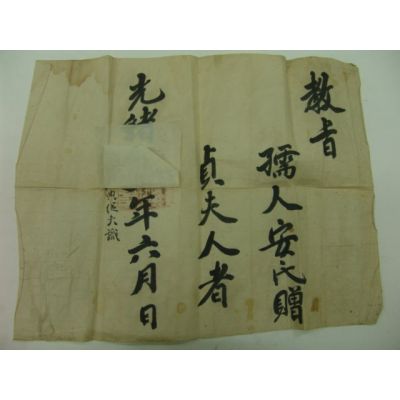 教旨
孺人安氏贈
貞夫人者
光緒 年六月日